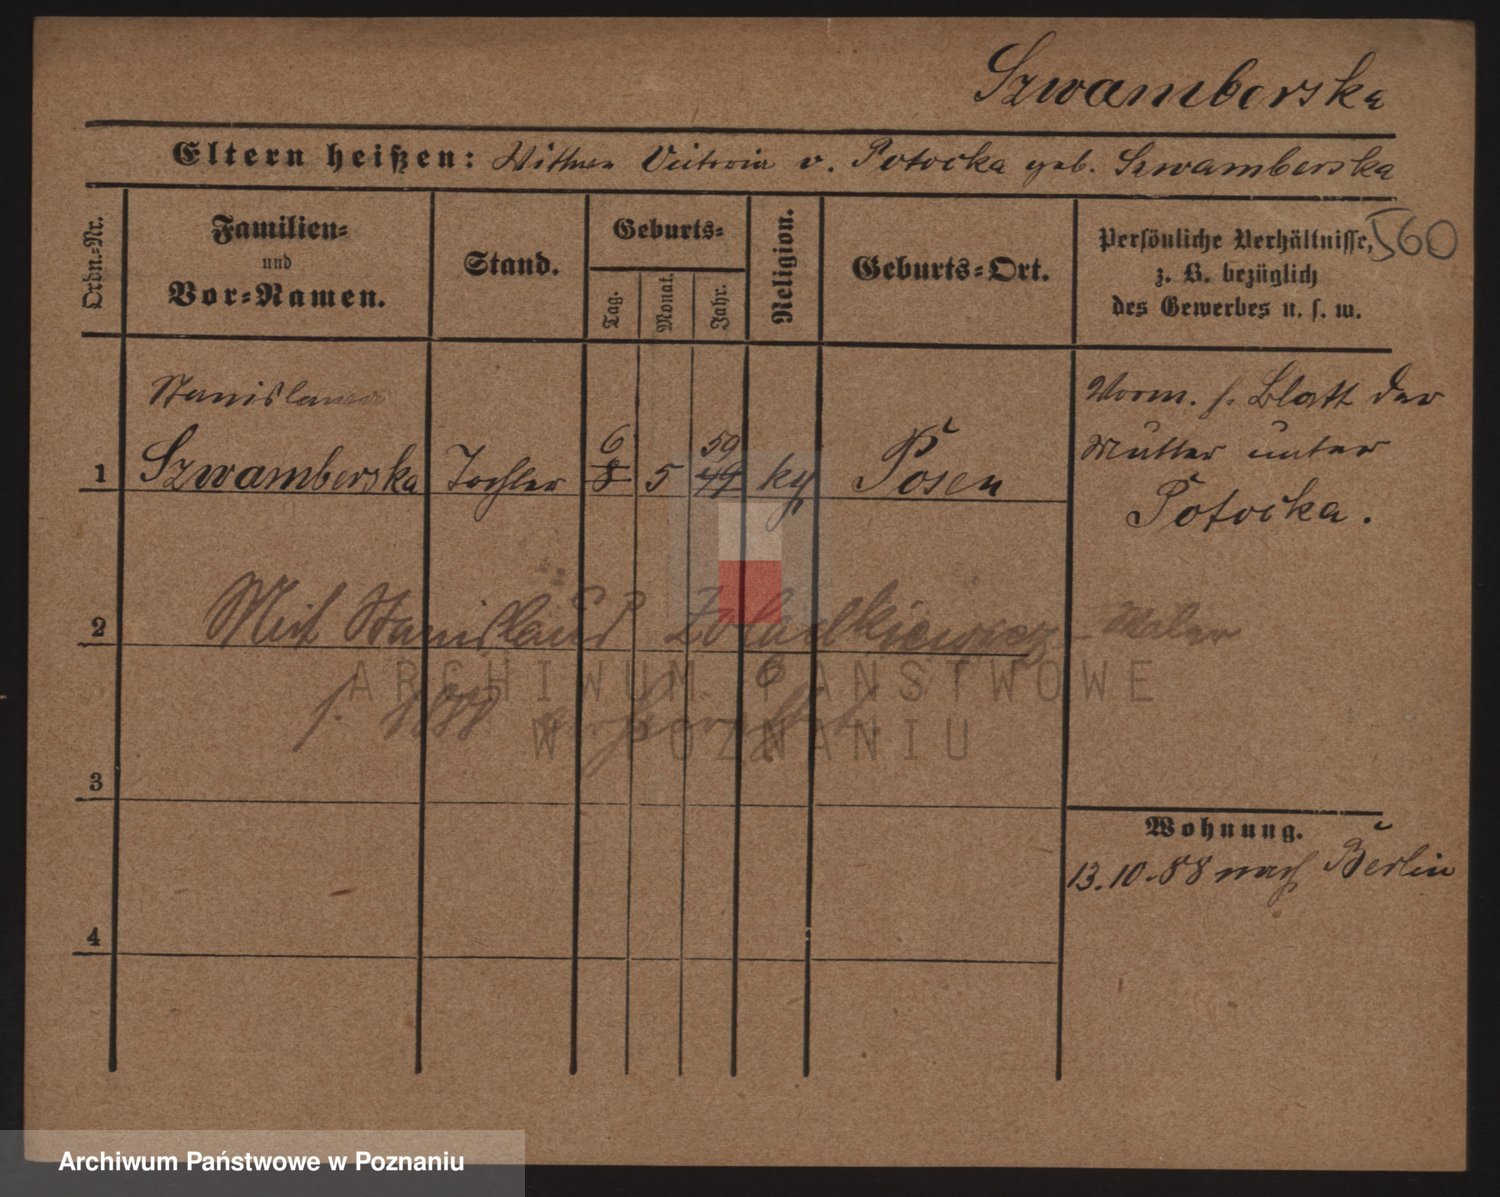 Szwamborska
Eltern heißen: Wittwe Victoria v. Potocka geb. Szwamberska
Ordn.-Nr.
Familien-
und
Vor-Namen.
Stand.
Geburts-
Tag.
Monat.
Jahr.
Religion.
Geburts-Ort.
Persönliche Verhältnisse,
z. B. bezüglich
des Gewerbes u. s. w.
560
Stanislawa
1 Szwamberska Tochter 6 8 5 59 49 kth Posen
Vorm. s. Blatt der
Mutter unter
Potocka.
2 Mit Stanislaus Maler
s. 1888 verheirathet.
3
4
Wohnung.
13.10.88 nach Berlin
ARCHIWUM PAŃSTWOWE
W POZNANIU
Archiwum Państwowe w Poznaniu